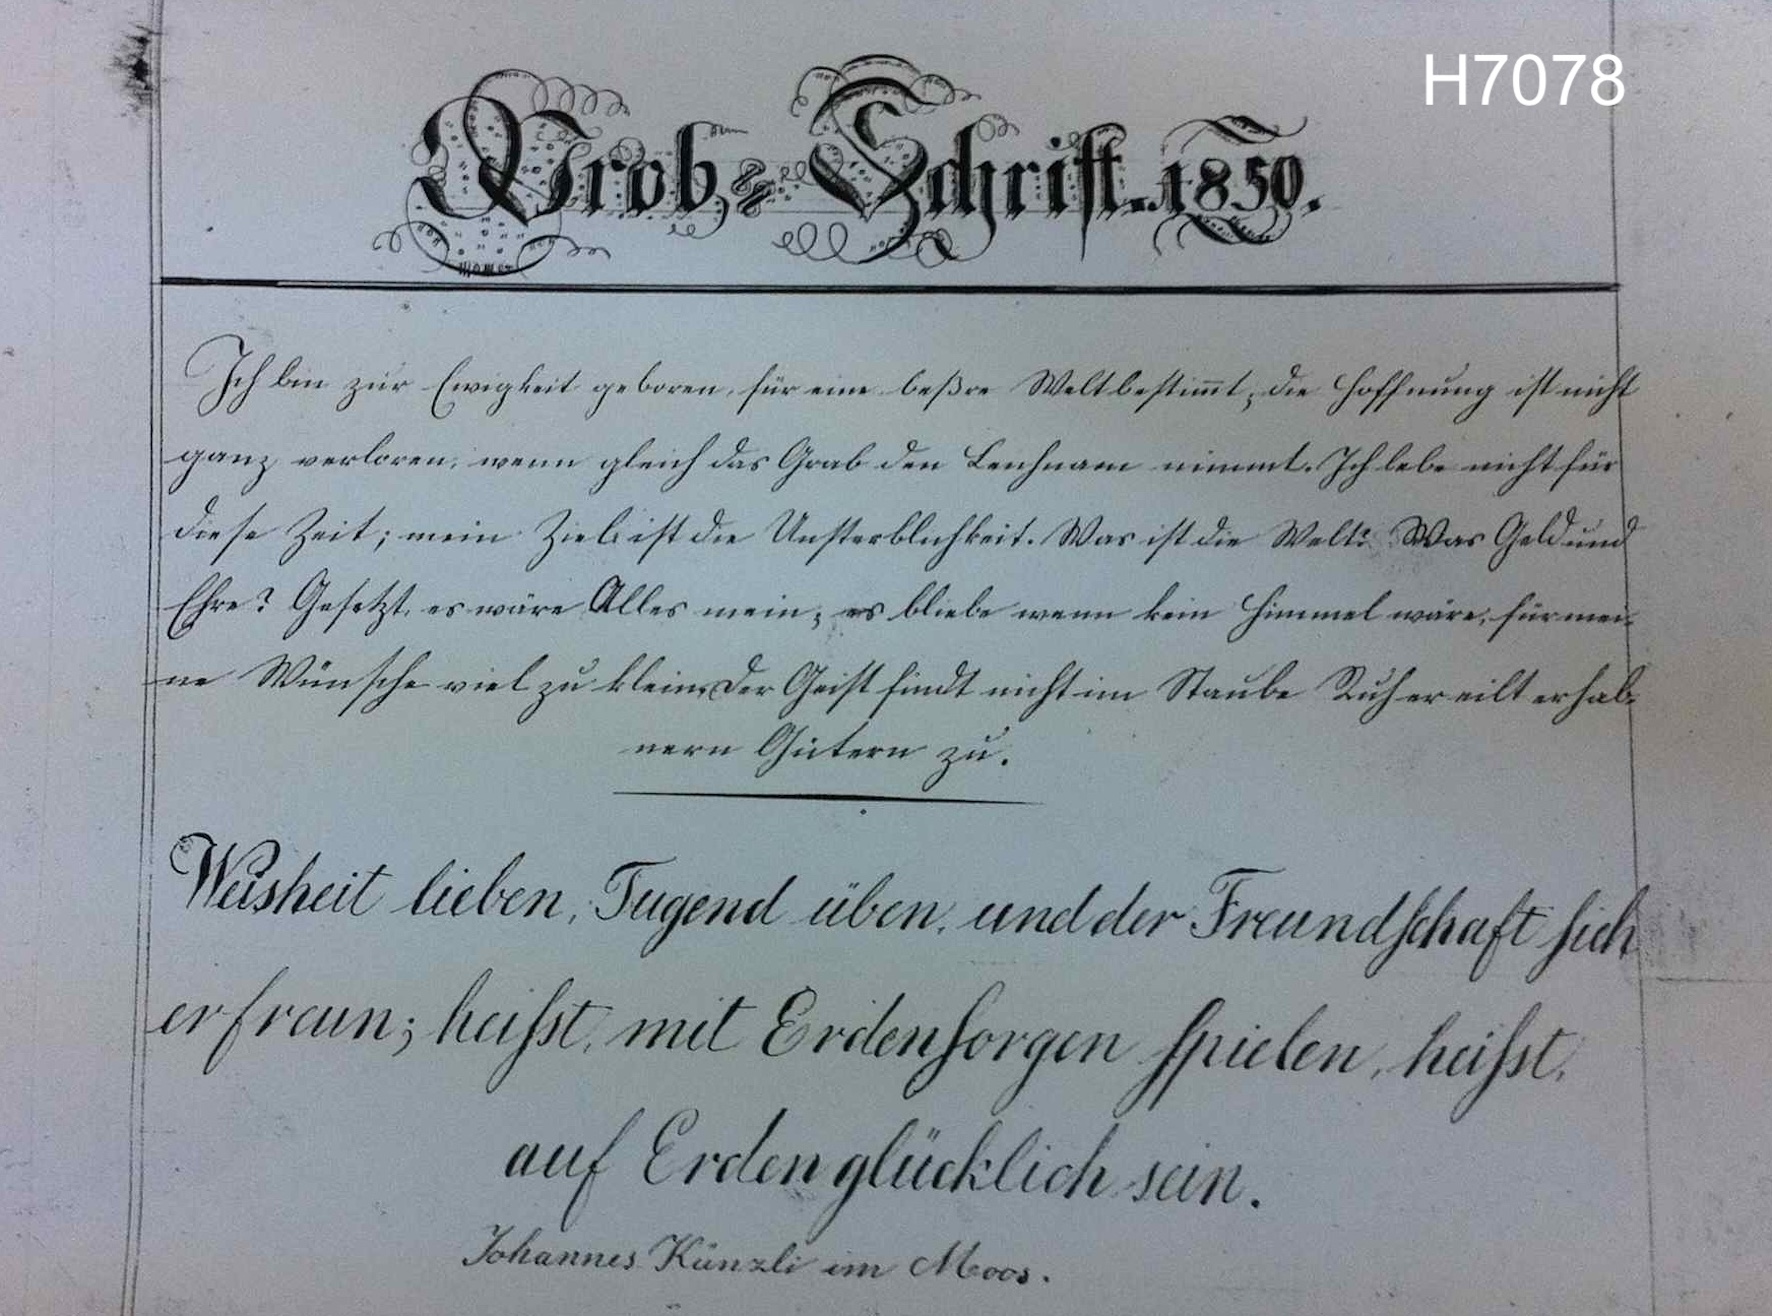 H7078
Prob, & Schrift. 1850.
Ich bin zur Ewigkeit geboren, für eine beßre Welt bestim̄t; die Hoffnung ist nicht
ganz verloren, wenn gleich das Grab den Leichnam nimmt. Ich lebe nicht für
diese Zeit; mein Ziel ist die Unsterblichkeit. Was ist die Welt? Was Geld und
Ehre? Gesetzt, es wäre Alles mein; es bliebe wenn kein Himmel wäre, für mei-
ne Wünsche viel zu klein. Der Geist findt nicht im Staube Ruh er eilt erhab-
nern Gütern zu.
Weisheit lieben, Tugend üben, und der Freundschaft sich
erfreun; heisst, mit Erdensorgen spielen, heisst,
auf Erden glücklich sein.
Johannes Künzli im Moos.